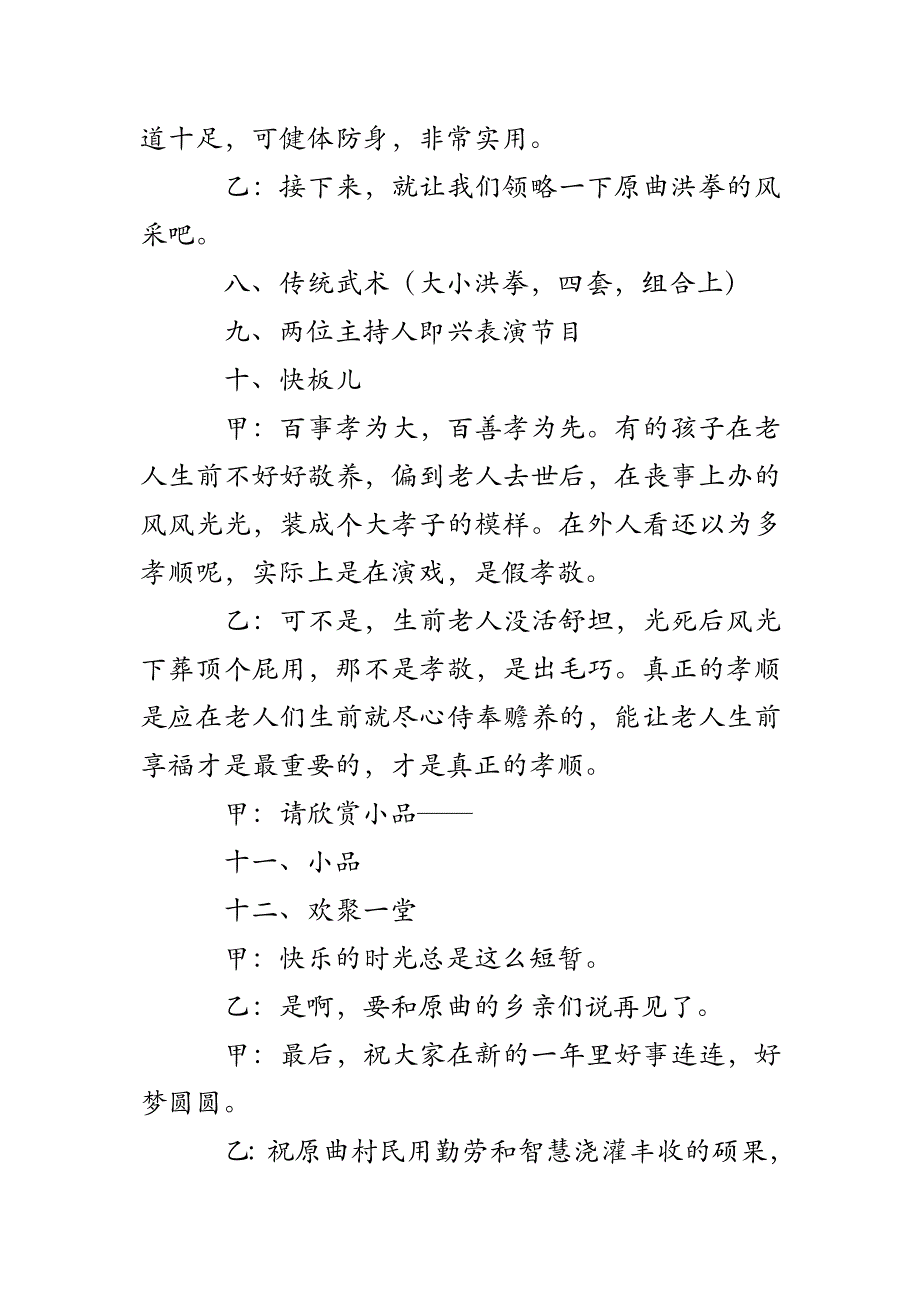 道十足，可健体防身，非常实用。
乙：接下来，就让我们领略一下原曲洪拳的风
采吧。
八、传统武术（大小洪拳，四套，组合上）
九、两位主持人即兴表演节目
十、快板儿
甲：百事孝为大，百善孝为先。有的孩子在老
人生前不好好敬养，偏到老人去世后，在丧事上办的
风风光光，装成个大孝子的模样。在外人看还以为多
孝顺呢，实际上是在演戏，是假孝敬。
乙：可不是，生前老人没活舒坦，光死后风光
下葬顶个屁用，那不是孝敬，是出毛巧。真正的孝顺
是应在老人们生前就尽心侍奉赡养的，能让老人生前
享福才是最重要的，才是真正的孝顺。
甲：请欣赏小品——
十一、小品
十二、欢聚一堂
甲：快乐的时光总是这么短暂。
乙：是啊，要和原曲的乡亲们说再见了。
甲：最后，祝大家在新的一年里好事连连，好
梦圆圆。
乙：祝原曲村民用勤劳和智慧浇灌丰收的硕果，